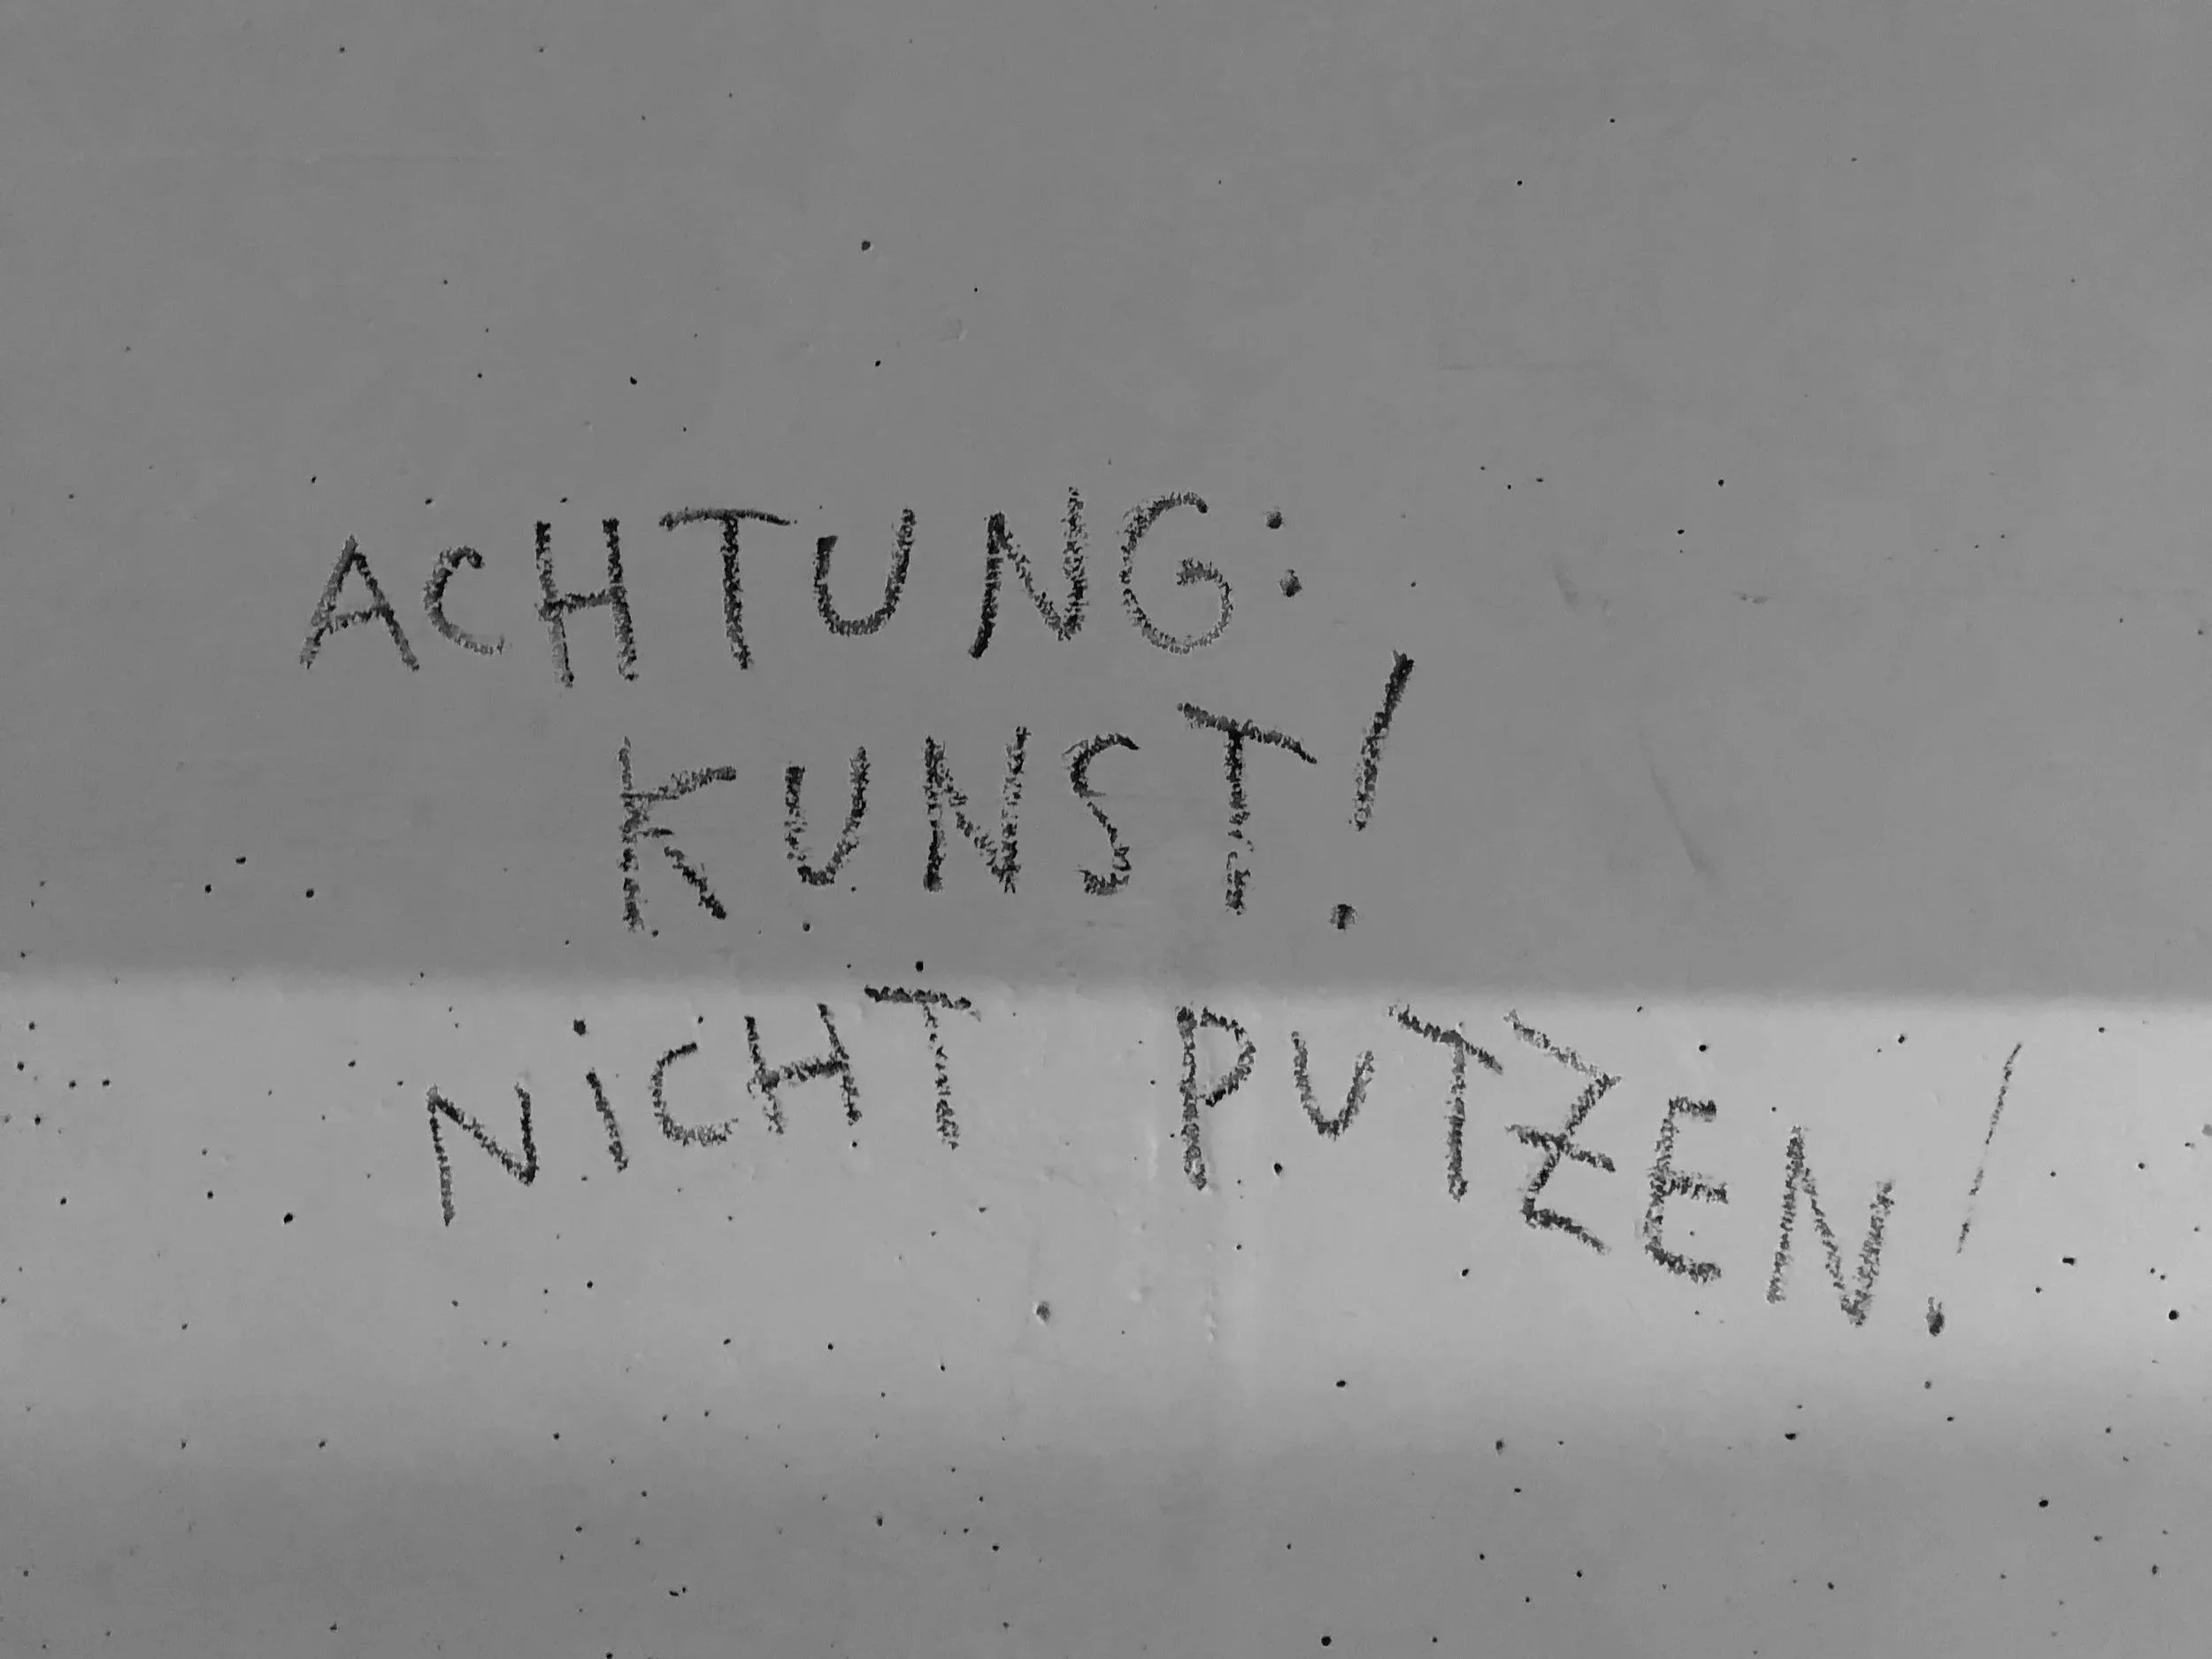 ACHTUNG:
KUNST!
NiCHT PUTZEN!